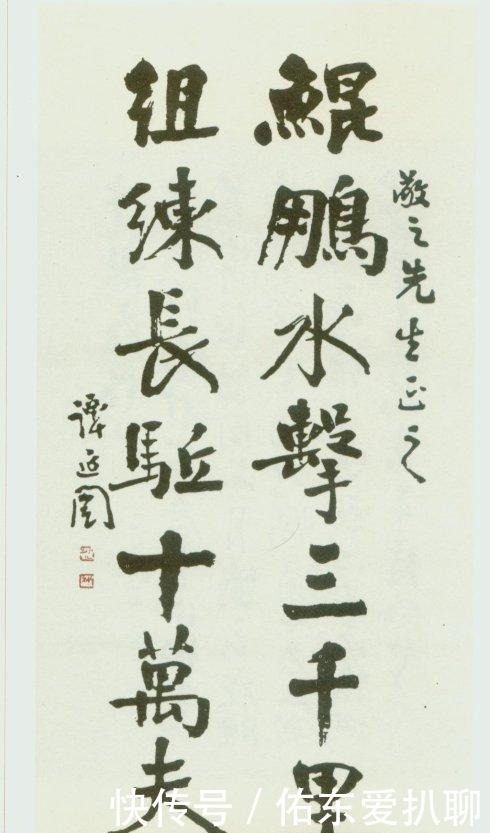 敬之先生正之
鯤鵬水擊三千里
組練長駈十萬夫
譚延闓
快传号 / 佑东爱扒聊